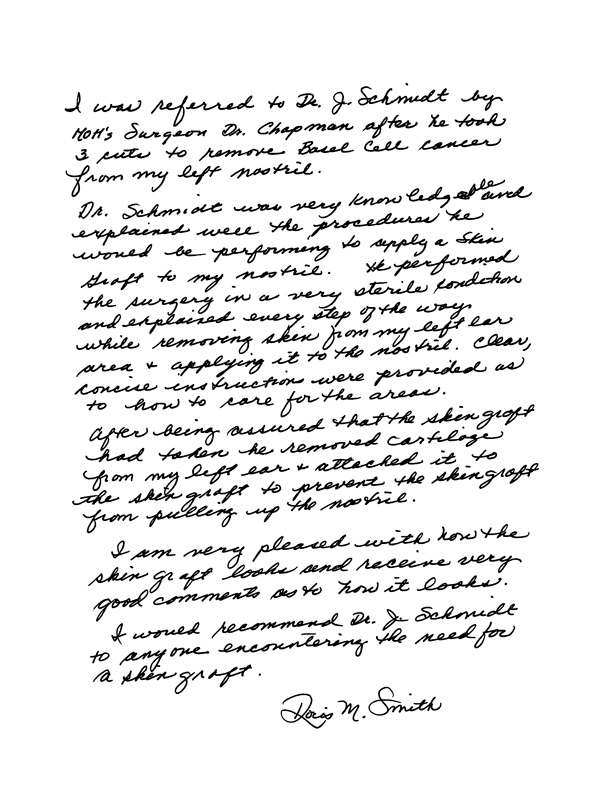 I was referred to Dr. J. Schmidt by
MOH's Surgeon Dr. Chapman after he took
3 cuts to remove Basel Cell cancer
from my left nostril.
Dr. Schmidt was very knowledgeable and
explained well the procedures he
would be performing to apply a Skin
Graft to my nostril. He performed
the surgery in a very sterile condition
and explained every step of the way
while removing skin from my left ear
area + applying it to the nostril. Clear,
concise instruction were provided as
to how to care for the areas.
After being assured that the skin graft
had taken he removed cartilage
from my left ear + attached it to
the skin graft to prevent the skin graft
from pulling up the nostril.
I am very pleased with how the
skin graft looks and receive very
good comments as to how it looks.
I would recommend Dr. J. Schmidt
to anyone encountering the need for
a skin graft.
Doris M. Smith